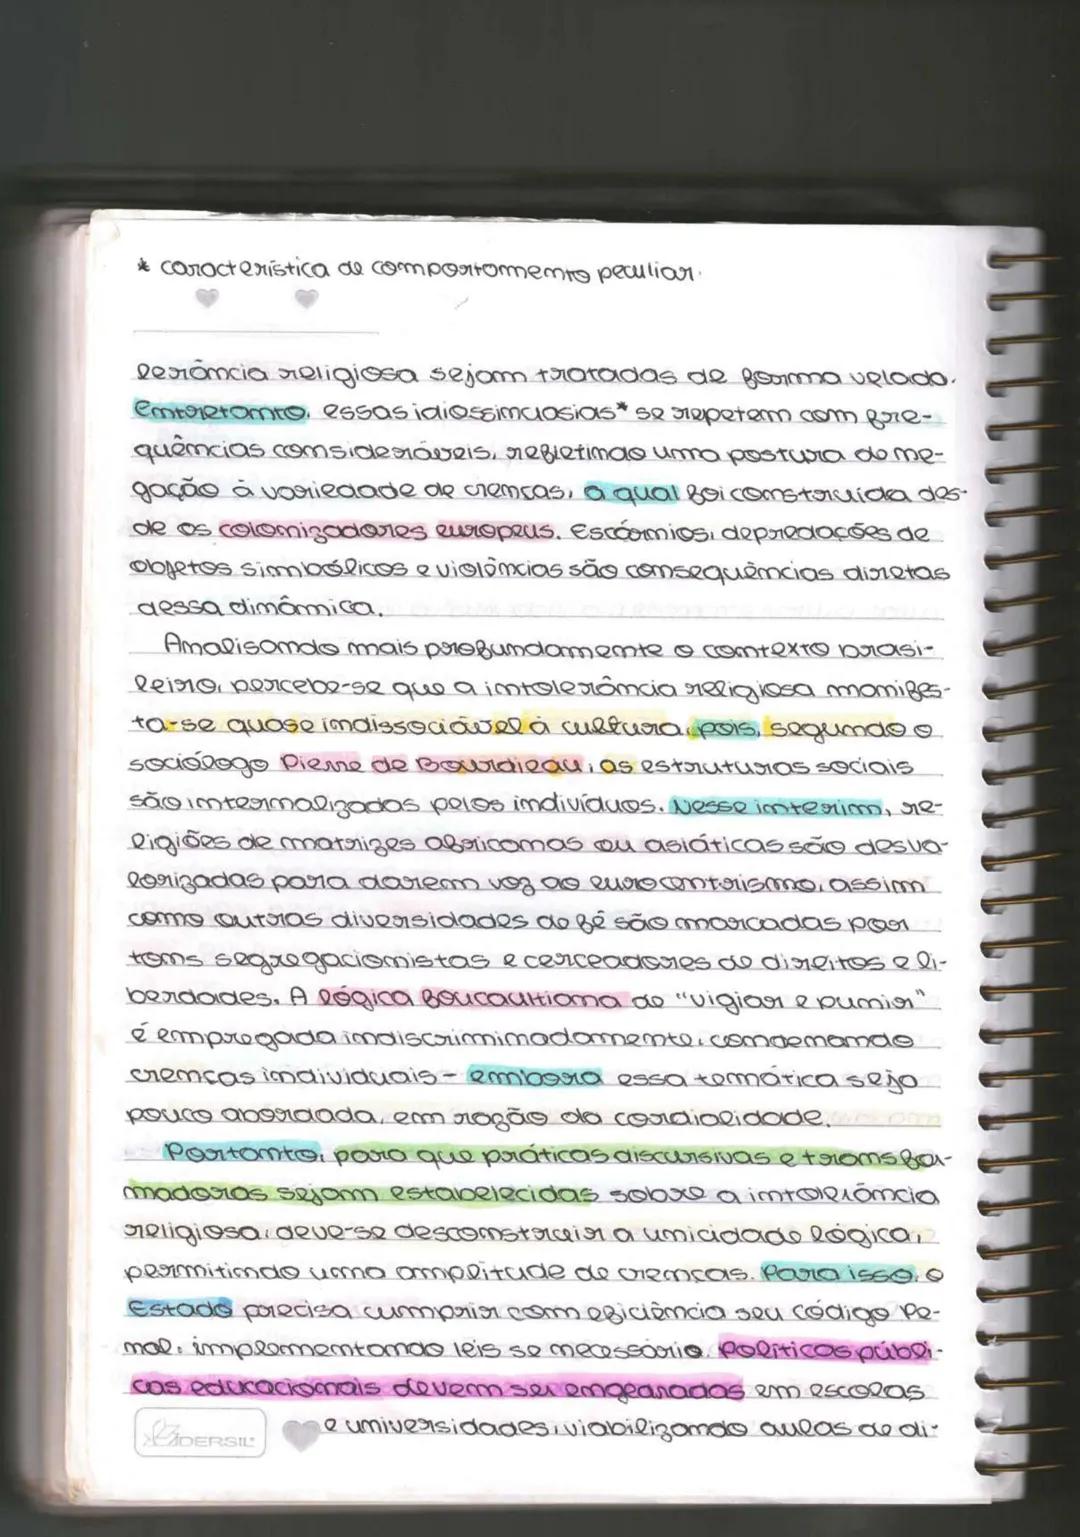 * característica de comportamento peculiar.
lerância religiosa sejam tratadas de forma velada.
Entretanto, essas idiossincrasias* se repetem com fre-
quências consideráveis, refletindo uma postura de ne-
gação à variedade de crenças, a qual foi construída des-
de os colonizadores europeus. Escárnios, depredações de
objetos simbólicos e violências são consequências diretas
dessa dinâmica.
Analisando mais profundamente o contexto brasi-
leiro, percebe-se que a intolerância religiosa manifes-
ta-se quase indissociável à cultura, pois, segundo o
sociólogo Pierre de Bourdieau, as estruturas sociais
são internalizadas pelos indivíduos. Nesse interim, re-
ligiões de matrizes africanas ou asiáticas são desva-
lorizadas para darem voz ao eurocentrismo, assim
como outras diversidades de fé são marcadas por
tons segregacionistas e cerceadores de direitos e li-
berdades. A lógica foucaultiana de "vigiar e punir"
é empregada indiscriminadamente, condenando
crenças individuais - embora essa temática seja
pouco abordada, em razão da cordialidade.
Portanto, para que práticas discursivas e transfor-
madoras sejam estabelecidas sobre a intolerância
religiosa, deve-se desconstruir a unicidade lógica,
permitindo uma amplitude de crenças. Para isso, o
Estado precisa cumprir com eficiência seu código Pe-
nal, implementando leis se necessário. Políticas públi-
cas educacionais devem ser engendradas em escolas
e universidades, viabilizando aulas de di-
DERSIL